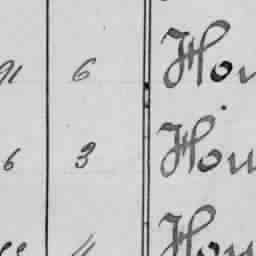 91 6 Hou
6 3 Hou
Hou